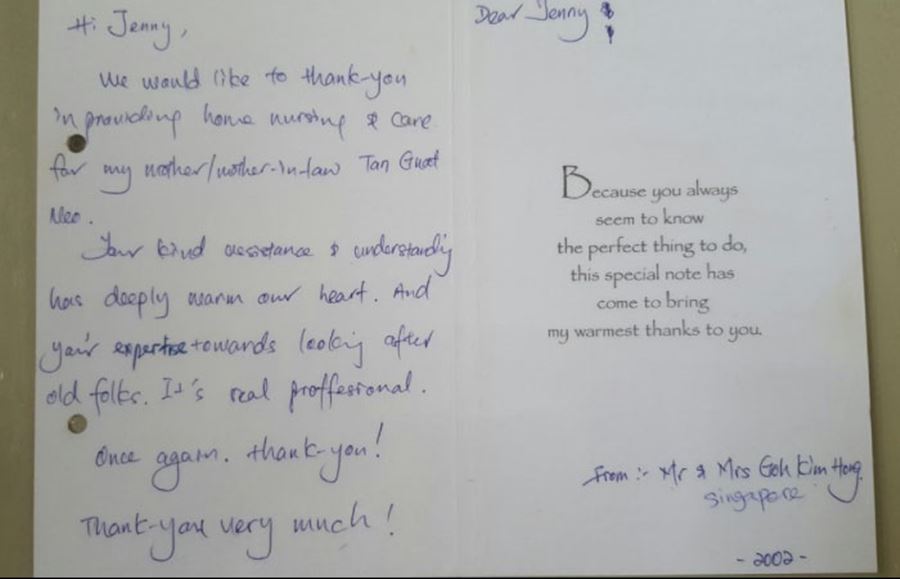 Hi Jenny,
We would like to thank-you
in providing home nursing & care
for my mother/mother-in-law Tan Guat
Neo.
Your kind assistance & understandig
has deeply warm our heart. And
your expertise towards lookig after
old folks. It's real proffesional.
Once again. thank-you!
Thank-you very much!
Dear Jenny
Because you always
seem to know
the perfect thing to do,
this special note has
come to bring
my warmest thanks to you.
From :- Mr & Mrs Goh Kim Hong.
Singapore
- 2002 -